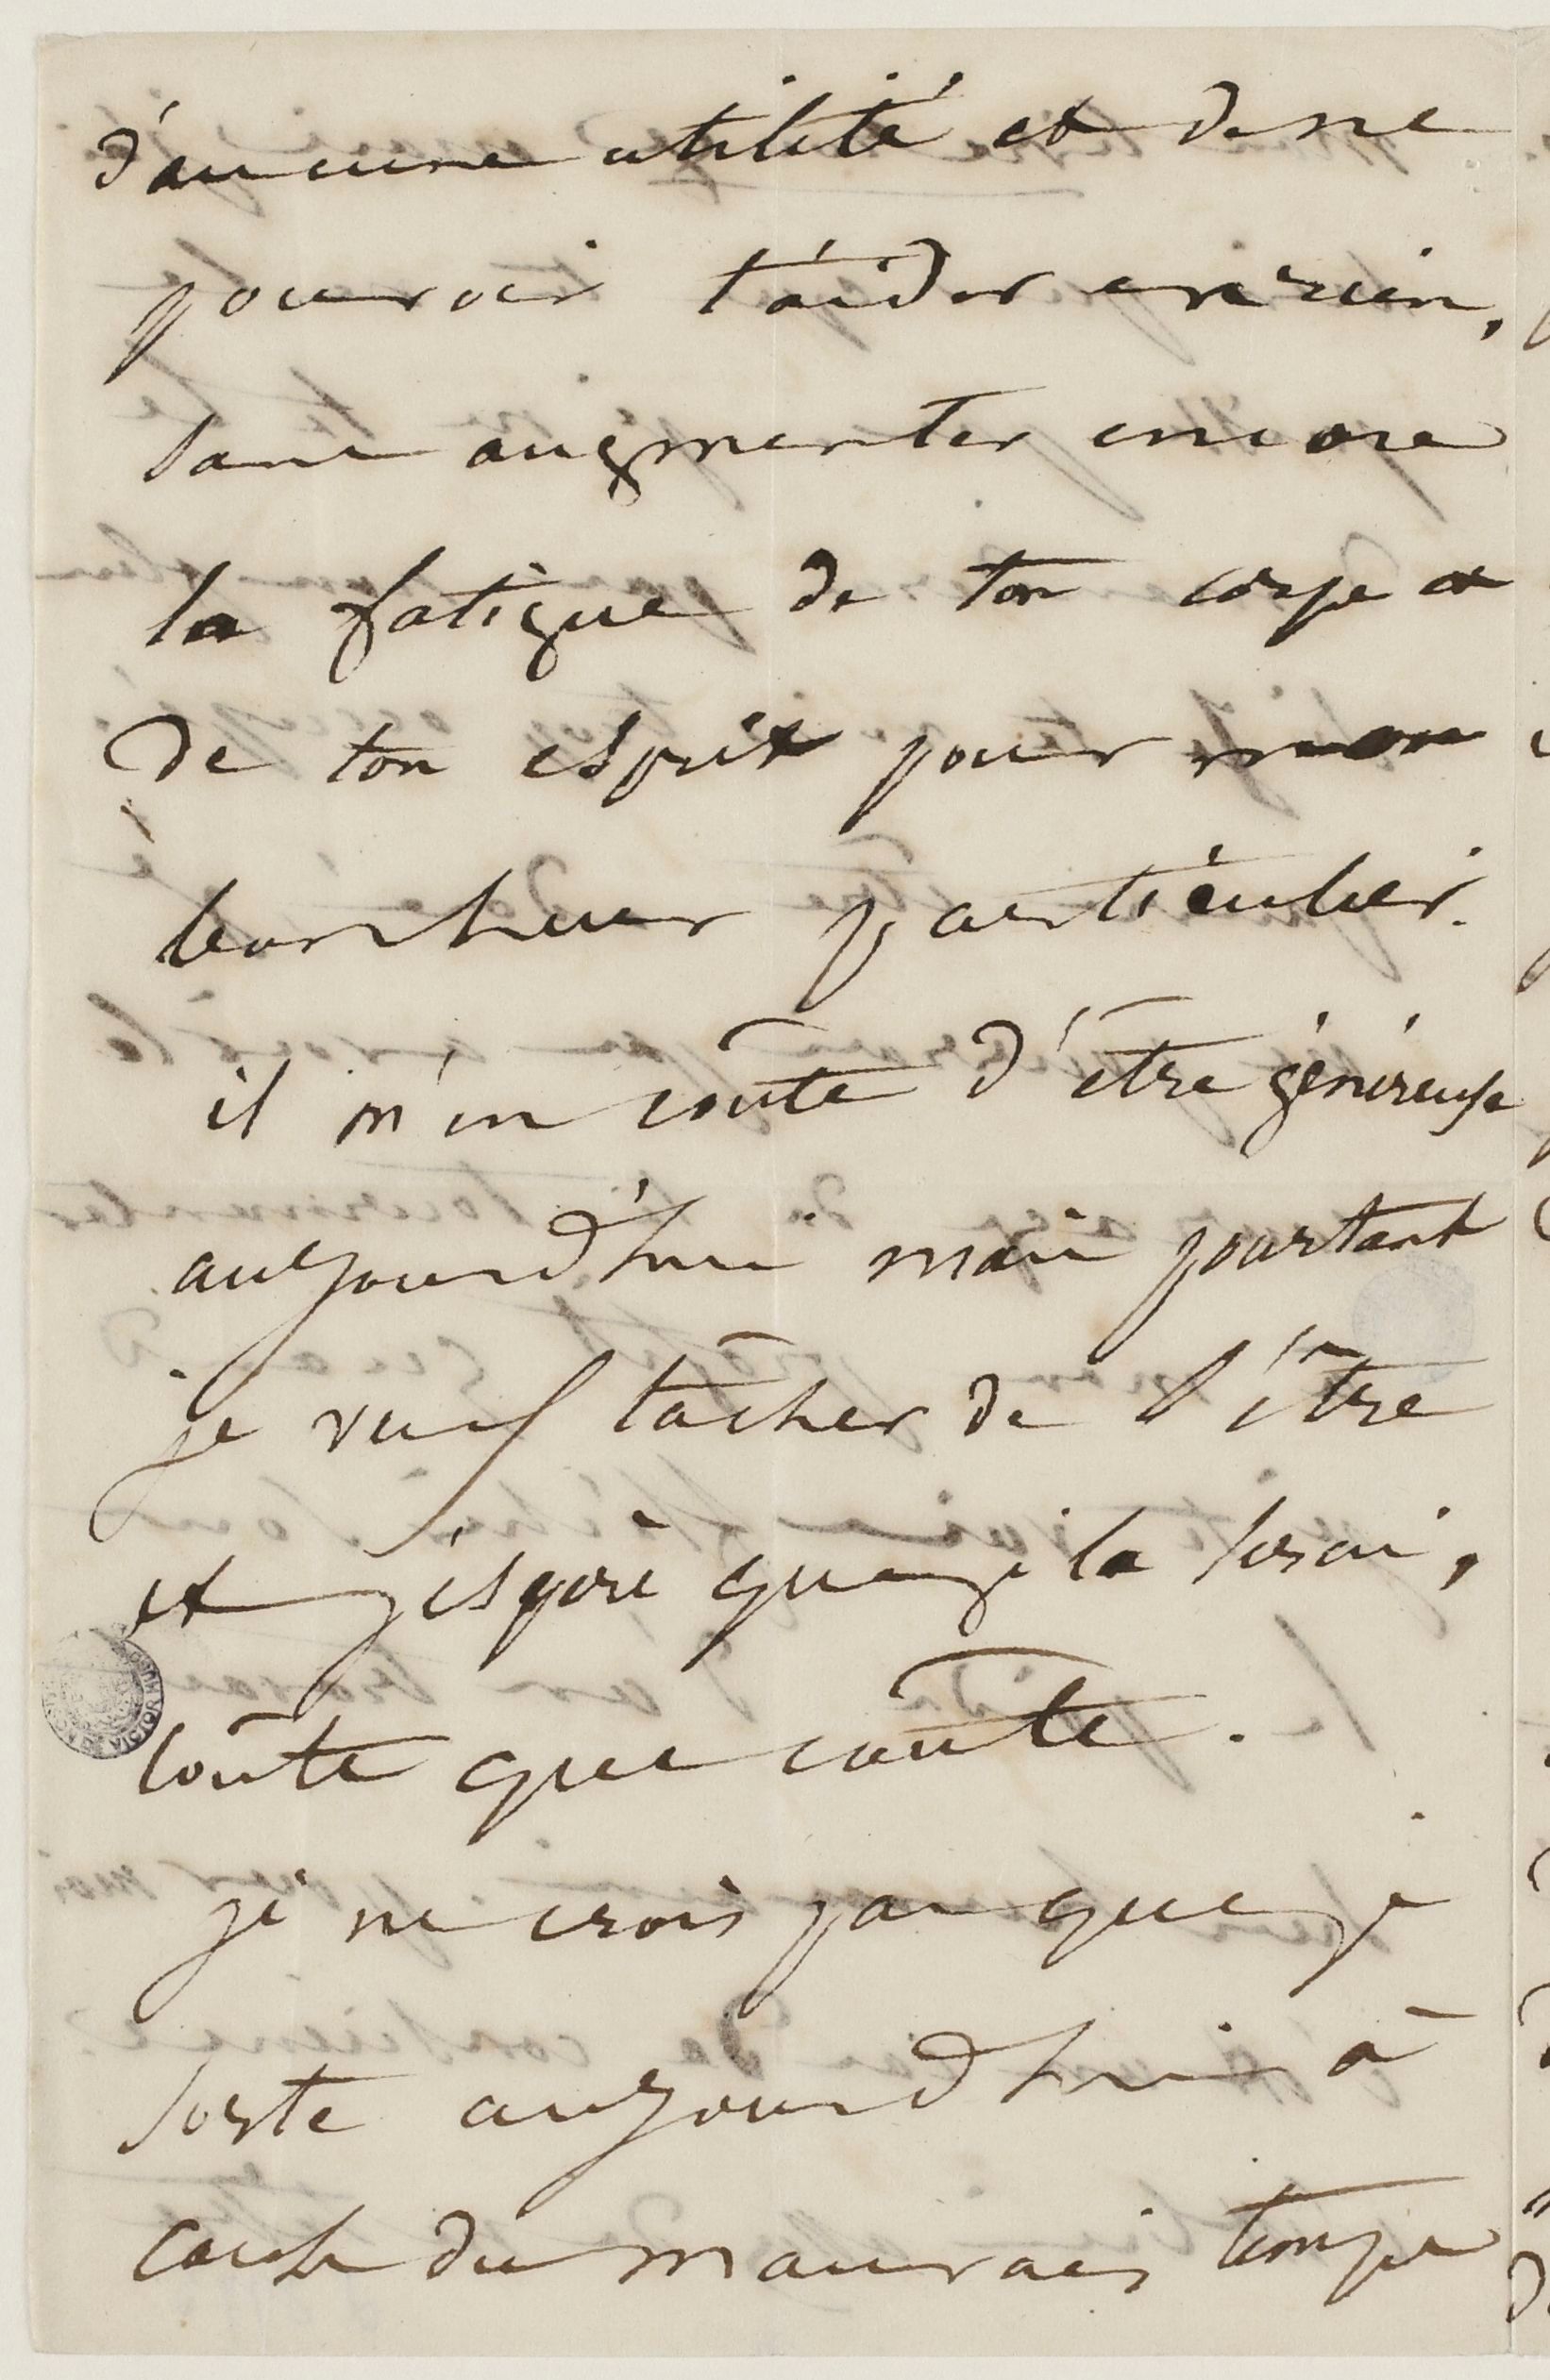 d'aucune utilité et de ne
pouvoir t'aider en rien,
sans augmenter encore
la fatigue de ton corps et
de ton esprit pour mon
bonheur particulier.
il m'en coûte d'être généreuse
aujourd'hui mais pourtant
je veux tâcher de l'être
et j'espère que je le serai,
coûte que coûte.
je ne crois pas que je
sorte aujourd'hui à
cause du mauvais temps